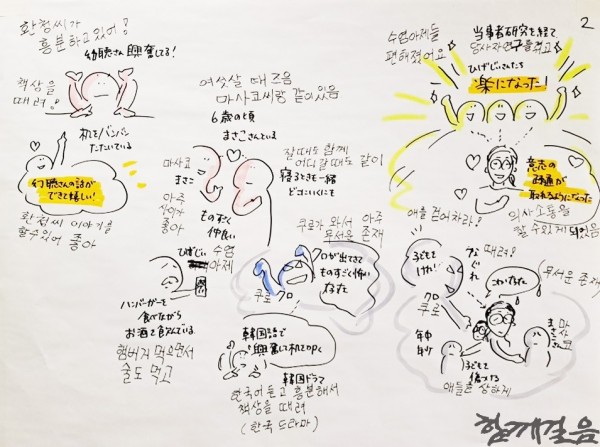 환청씨가
흥분하고 있어!
幼聴さん興奮してる!
책상을
때려!
机をバンバン
たたいている
幻聴さんの話が
できて嬉しい!
환청씨 이야기를
할수있어 좋아
여섯살 때즈음
마사코씨랑 같이있음
6歳の頃
まさこさんといる
마사코
まさこ
아주
사이가
좋아
ものすごく
仲良い
잘때도 함께
어디갈때도 같이
寝るときも一緒
どこにいくにも
ひげじい
수염
아제
ハンバーガーを
食べながら
お酒を飲んでいる
햄버거 먹으면서
술도 먹고
쿠로가 와서 아주
무서운 존재
クロが出てきて
ものすごく怖い
쿠로 クロ
韓国語で
興奮して机を叩く
韓国ドラマ
한국어 듣고 흥분해서
책상을 때려
(한국 드라마)
2
수염아제들
편해졌어요
当事者研究を経て
당사자연구를 하고
ひげじいさんたち
楽になった!
意志の
疎通が
取れるようになった
의사소통을
할 수 있게 되었음
애를 걷어차라!
子どもを
けれ!
때려!
なぐれ
こわい
(무서운 존재)
クロ
쿠로
마사코
まさこさん
子どもを
傷つける
애들을 상하게
함께걸음